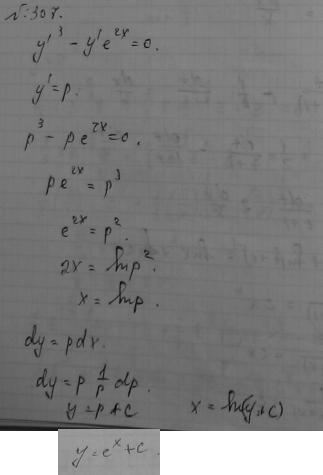 №307.
y'³ - y'e²ˣ = 0.
y' = p.
p³ - pe²ˣ = 0.
pe²ˣ = p³
e²ˣ = p².
2x = ln p².
x = ln p.
dy = pdx.
dy = p 1/p dp.
y = p + c x = ln(y+c)
y = eˣ + c.